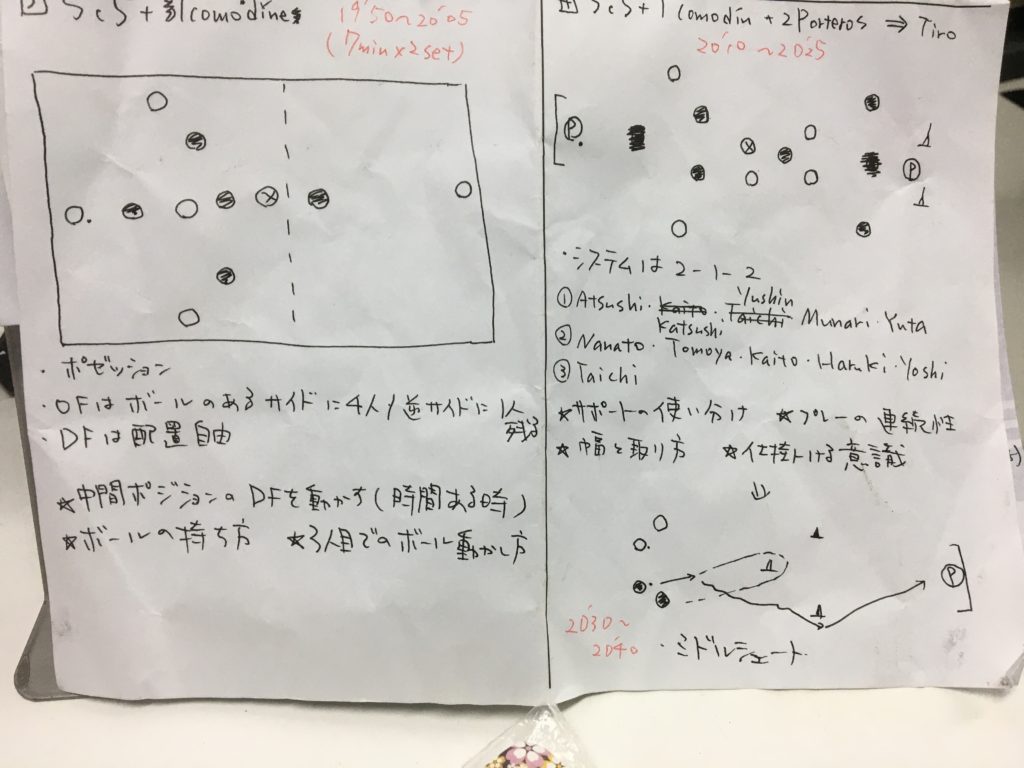 5c5 + 1 comodines
19'50〜20'05
(7min×2set)
・ポゼッション
・OFはボールのあるサイドに4人/逆サイドに1人
残る
・DFは配置自由
☆中間ポジションのDFを動かす(時間ある時)
☆ボールの持ち方 ☆3人目でのボール動かし方
4 5c5 + 1 comodín + 2 Porteros ⇒ Tiro
20'10〜20'25
P P
・システムは2-1-2
Yushin
①Atsushi・Kaito・Taichi Munari・Yuta
Katsushi
②Nanato・Tomoya・Kaito・Haruki・Yoshi
③Taichi
☆サポートの使い分け ☆プレーの連続性
☆幅と取り方 ☆仕掛ける意識
P
20'30〜
20'40
・ミドルシュート